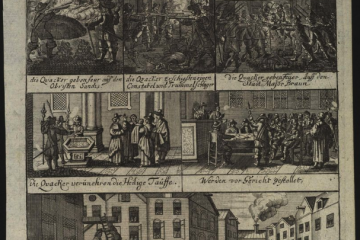 die Quacker geben feur auf den
Obristen Sands
die Quacker erschiessen einen
Constabel und Trummelschlager
Die Quacker
Stadt Major Braun.
die Quacker verunehren die Heilige Tauffe.
Werden vor Gericht gestellet.